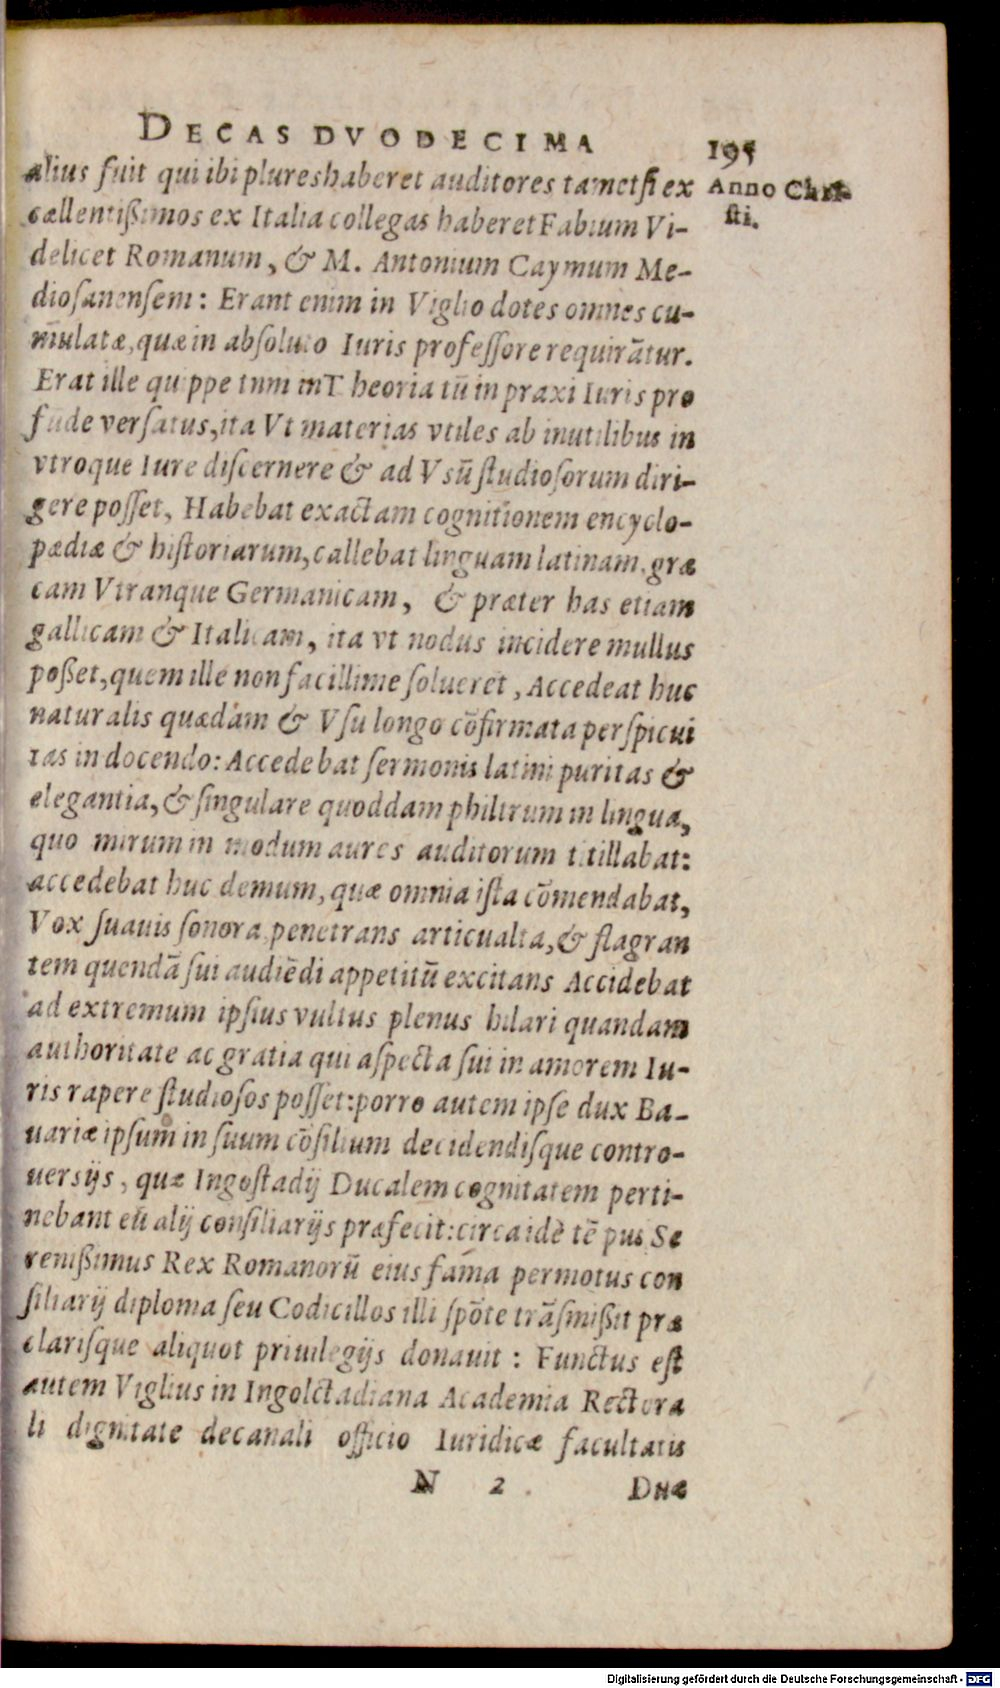 DECAS DVODECIMA 195
Anno Christi.
alius fuit qui ibi plureshaberet auditores tametsi ex
cællentißimos ex Italia collegas haberet Fabium Vi-
delicet Romanum, & M. Antonium Caymum Me-
diosanensem: Erant enim in Viglio dotes omnes cu-
mulatæ, quæ in absoluto Iuris professore requirātur.
Erat ille quippe tnm inT heoria tū in praxi Iuris pro
fūde versatus, ita Vt materias vtiles ab inutilibus in
vtroque Iure discernere & ad Vsū studiosorum diri-
gere posset, Habebat exactam cognitionem encyclo-
pædiæ & historiarum, callebat linguam latinam, græ
cam Vtranque Germanicam, & præter has etiam
gallicam & Italicam, ita vt nodus incidere mullus
poßet, quem ille non facillime solueret, Accedeat huc
naturalis quædam & Vsu longo cōfirmata perspicui
tas in docendo: Accedebat sermonis latini puritas &
elegantia, & singulare quoddam philtrum in lingua,
quo mirum in modum aures auditorum titillabat:
accedebat huc demum, quæ omnia ista cōmendabat,
Vox suauis sonora penetrans articualta, & flagran
tem quendā sui audiēdi appetitū excitans Accidebat
ad extremum ipsius vultus plenus hilari quandam
authoritate ac gratia qui aspecta sui in amorem Iu-
ris rapere studiosos posset: porro autem ipse dux Ba-
uariæ ipsum in suum cōsilium decidendisque contro-
uersijs, quæ Ingostadij Ducalem cognitatem perti-
nebant eū alij consiliarijs præfecit: circa idē tē pus Se
renißimus Rex Romanorū eius fama permotus con
siliarij diploma seu Codicillos illi spōte trāsmißit præ
clarisque aliquot priuilegijs donauit: Functus est
autem Viglius in Ingolctadiana Academia Rectora
li dignitate decanali officio Iuridicæ facultatis
N 2. Duæ
Digitalisierung gefördert durch die Deutsche Forschungsgemeinschaft - DFG